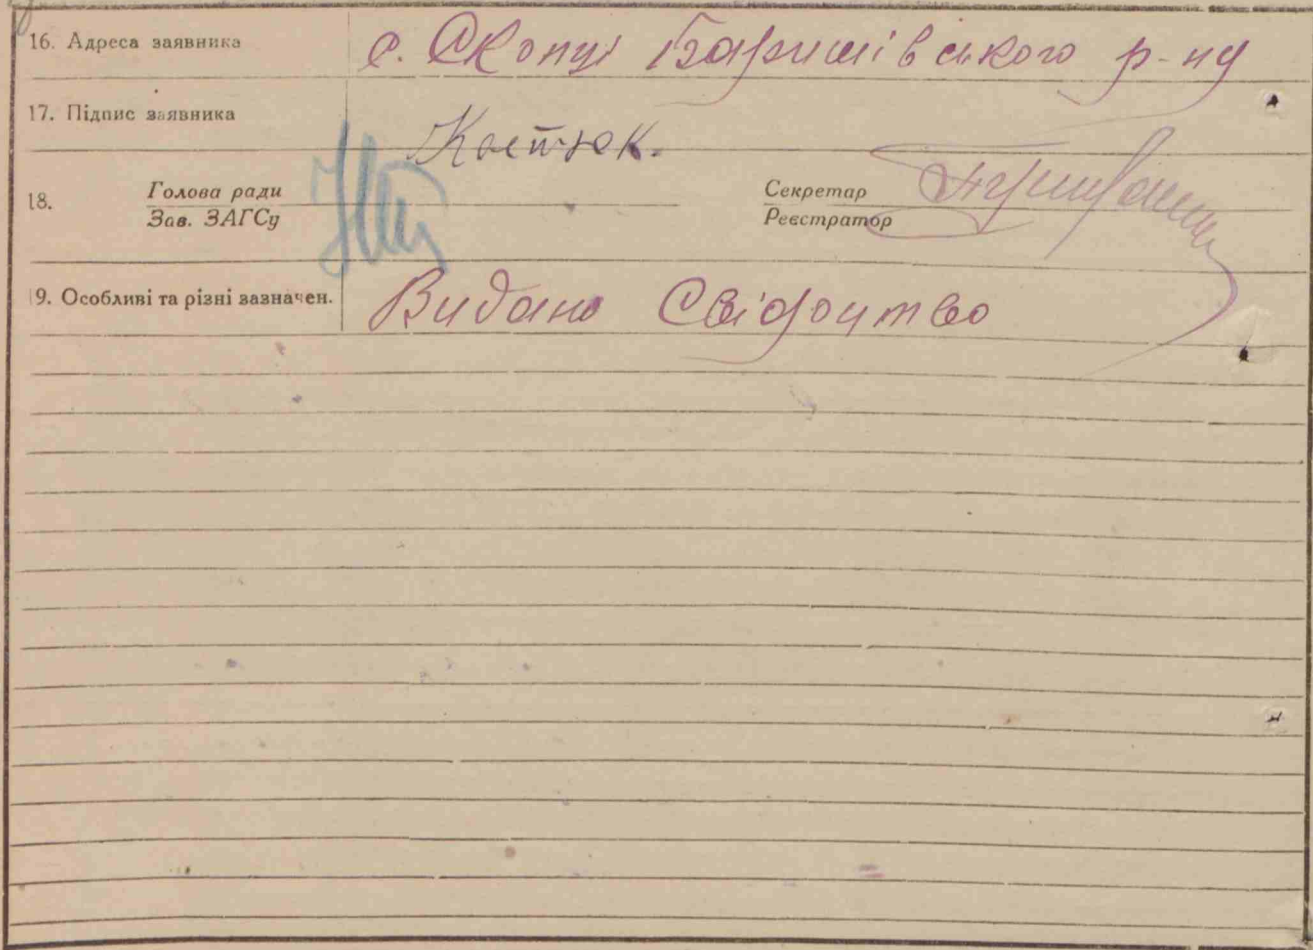 16. Адреса заявника с. Скопці Баришівського р-ну
17. Підпис заявника Костюк.
18. Голова ради Секретар
Зав. ЗАГСу Реєстратор
9. Особливі та різні зазначен. Видано Свідоцтво